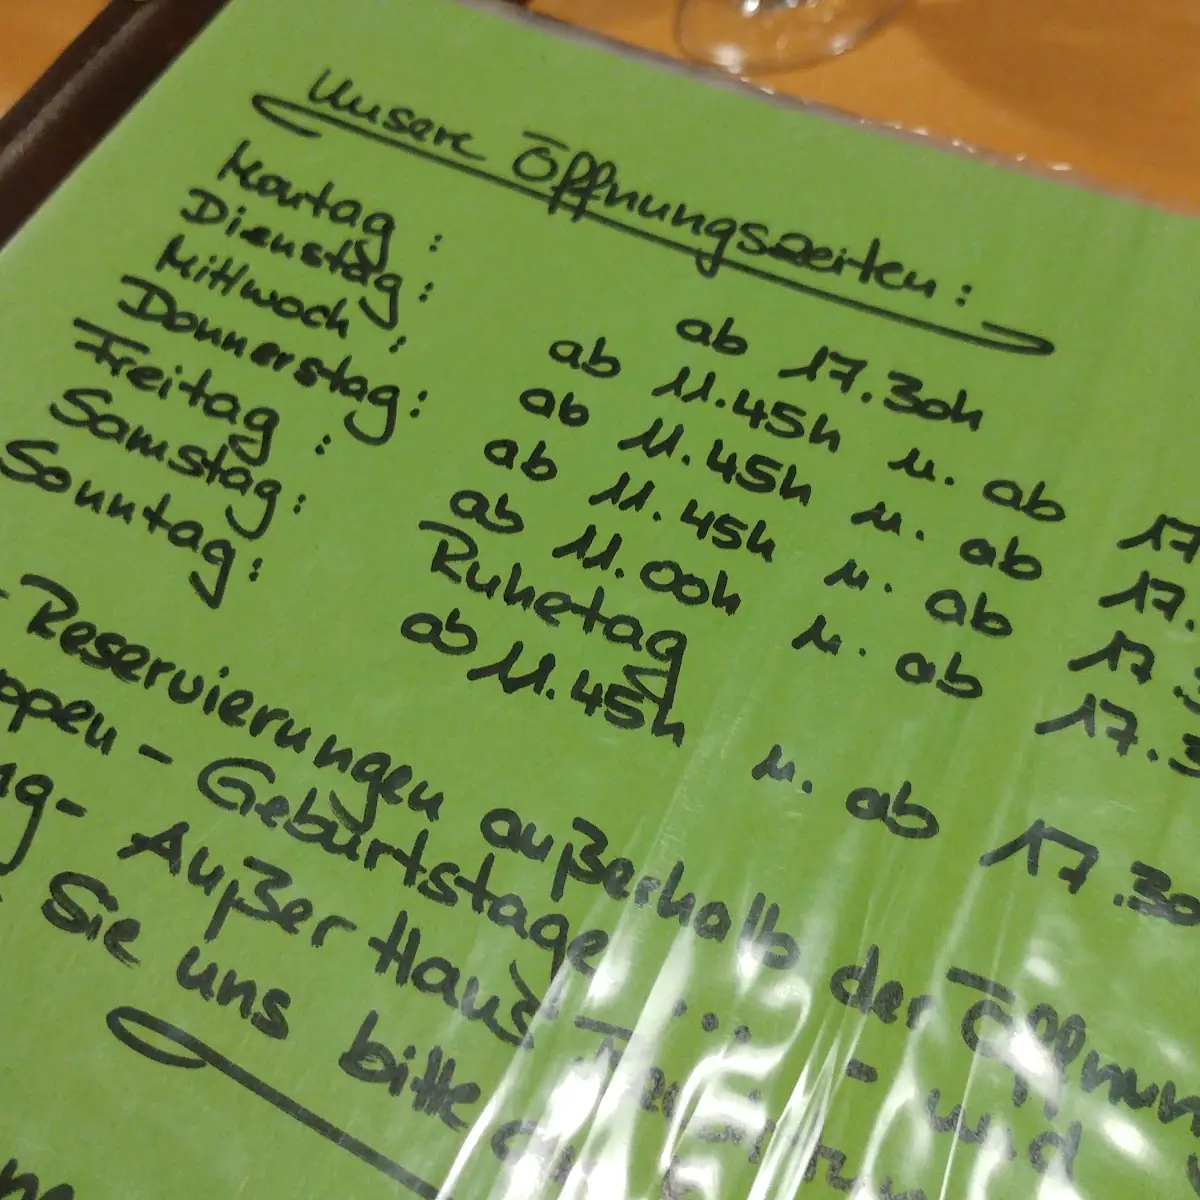 Unsere Öffnungszeiten:
Montag : ab 17.30h
Dienstag : ab 11.45h u. ab 17
Mittwoch : ab 11.45h u. ab 17.
Donnerstag: ab 11.45h u. ab 17.3
Freitag : ab 11.00h u. ab 17.3
Samstag: Ruhetag
Sonntag: ab 11.45h u. ab 17.30
-Reservierungen außerhalb der Öffnun
ppen - Geburtstage ... - und
ng- Außer Haus
Sie uns bitte